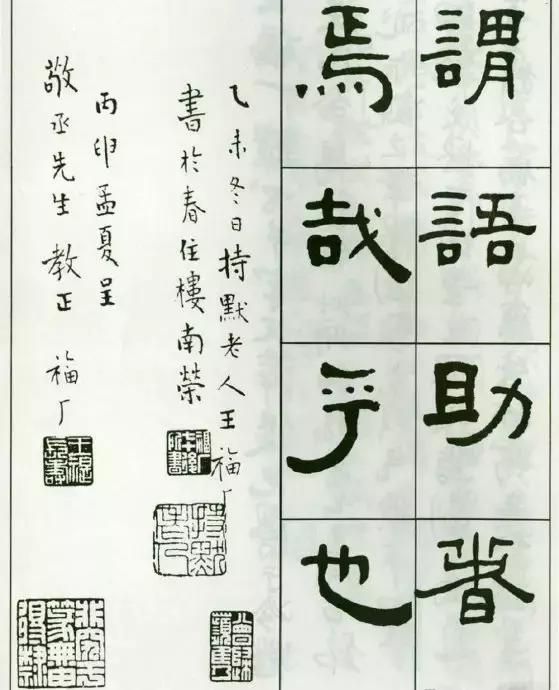 謂語助者
焉哉乎也
乙未冬日持默老人王福厂
書於春住樓南榮
丙卯孟夏呈
敬丞先生教正 福厂
持默老人